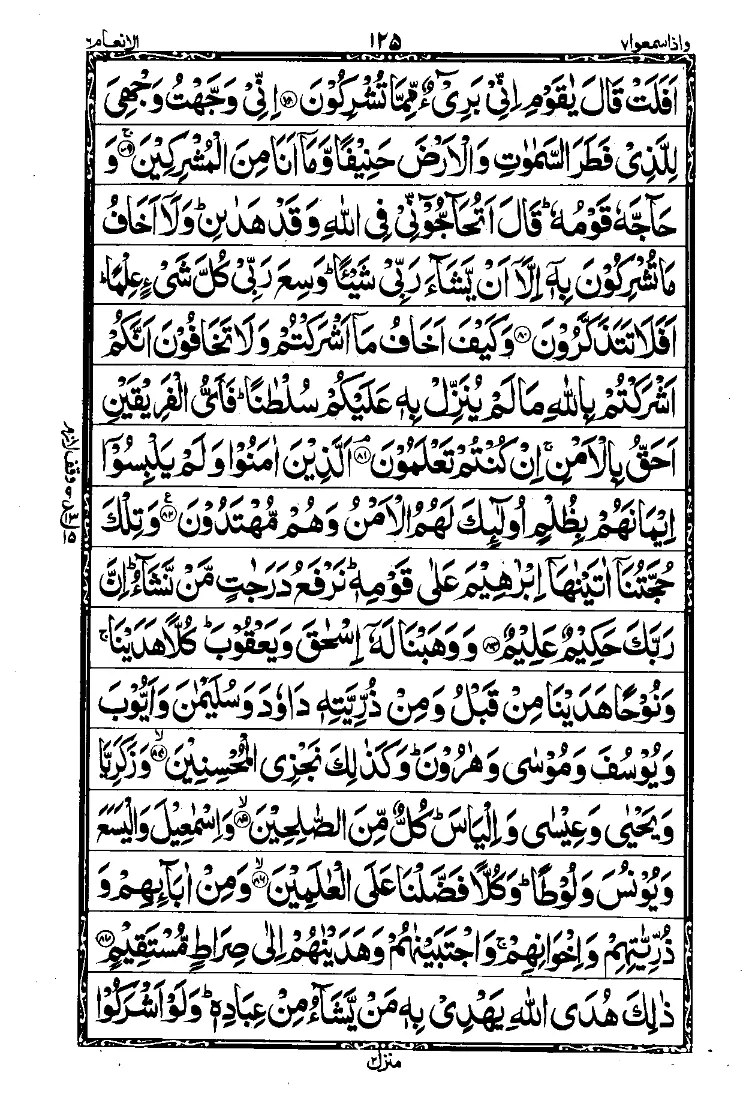 واذاسمعوا٧ ١٢٥ الانعام٦
اَفَلَتْ قَالَ يٰقَوْمِ اِنِّىْ بَرِىْٓءٌ مِّمَّا تُشْرِكُوْنَ ﴿٧٨﴾ اِنِّىْ وَجَّهْتُ وَجْهِىَ
لِلَّذِىْ فَطَرَ السَّمٰوٰتِ وَالْاَرْضَ حَنِيْفًا وَّمَاۤ اَنَا مِنَ الْمُشْرِكِيْنَ ﴿٧٩﴾ۚ وَ
حَآجَّهٗ قَوْمُهٗ ؕ قَالَ اَتُحَآجُّوْٓنِّىْ فِى اللّٰهِ وَقَدْ هَدٰىنِ ؕ وَلَاۤ اَخَافُ
مَا تُشْرِكُوْنَ بِهٖۤ اِلَّاۤ اَنْ يَّشَآءَ رَبِّىْ شَيْـًٔا ؕ وَسِعَ رَبِّىْ كُلَّ شَىْءٍ عِلْمًا ؕ
اَفَلَا تَتَذَكَّرُوْنَ ﴿٨٠﴾ وَكَيْفَ اَخَافُ مَاۤ اَشْرَكْتُمْ وَلَا تَخَافُوْنَ اَنَّكُمْ
اَشْرَكْتُمْ بِاللّٰهِ مَا لَمْ يُنَزِّلْ بِهٖ عَلَيْكُمْ سُلْطٰنًا ؕ فَاَىُّ الْفَرِيْقَيْنِ
اَحَقُّ بِالْاَمْنِ ۚ اِنْ كُنْتُمْ تَعْلَمُوْنَ ﴿٨١﴾ۘ اَلَّذِيْنَ اٰمَنُوْا وَلَمْ يَلْبِسُوْۤا
اِيْمَانَهُمْ بِظُلْمٍ اُولٰٓئِكَ لَهُمُ الْاَمْنُ وَهُمْ مُّهْتَدُوْنَ ﴿٨٢﴾ؑ وَتِلْكَ
حُجَّتُنَاۤ اٰتَيْنٰهَاۤ اِبْرٰهِيْمَ عَلٰى قَوْمِهٖ ؕ نَرْفَعُ دَرَجٰتٍ مَّنْ نَّشَآءُ ؕ اِنَّ
رَبَّكَ حَكِيْمٌ عَلِيْمٌ ﴿٨٣﴾ وَوَهَبْنَا لَهٗۤ اِسْحٰقَ وَيَعْقُوْبَ ؕ كُلًّا هَدَيْنَا ۚ
وَنُوْحًا هَدَيْنَا مِنْ قَبْلُ وَمِنْ ذُرِّيَّتِهٖ دَاوٗدَ وَسُلَيْمٰنَ وَاَيُّوْبَ
وَيُوْسُفَ وَمُوْسٰى وَهٰرُوْنَ ؕ وَكَذٰلِكَ نَجْزِى الْمُحْسِنِيْنَ ﴿٨٤﴾ۙ وَزَكَرِيَّا
وَيَحْيٰى وَعِيْسٰى وَاِلْيَاسَ ؕ كُلٌّ مِّنَ الصّٰلِحِيْنَ ﴿٨٥﴾ۙ وَاِسْمٰعِيْلَ وَالْيَسَعَ
وَيُوْنُسَ وَلُوْطًا ؕ وَكُلًّا فَضَّلْنَا عَلَى الْعٰلَمِيْنَ ﴿٨٦﴾ۙ وَمِنْ اٰبَآئِهِمْ وَ
ذُرِّيّٰتِهِمْ وَاِخْوَانِهِمْ ۚ وَاجْتَبَيْنٰهُمْ وَهَدَيْنٰهُمْ اِلٰى صِرَاطٍ مُّسْتَقِيْمٍ ﴿٨٧﴾
ذٰلِكَ هُدَى اللّٰهِ يَهْدِىْ بِهٖ مَنْ يَّشَآءُ مِنْ عِبَادِهٖ ؕ وَلَوْ اَشْرَكُوْا
منزل٢